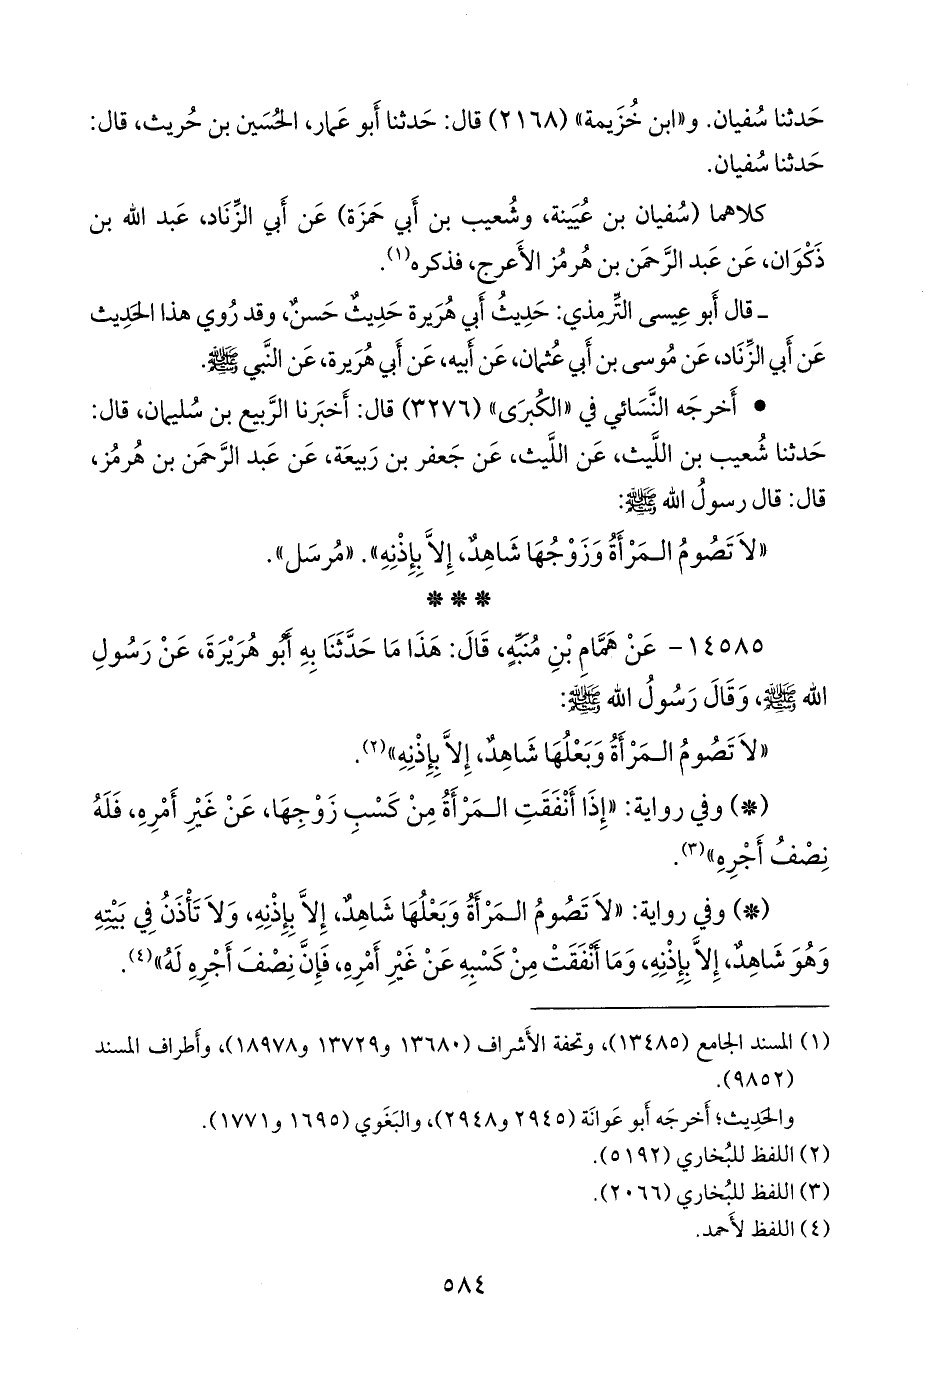 حَدثنا سُفيان. و«ابن خُزَيمة» (٢١٦٨) قال: حَدثنا أَبو عَمار، الحُسَين بن حُريث، قال:
حَدثنا سُفيان.
كلاهما (سُفيان بن عُيَينة، وشُعيب بن أَبي حَمزَة) عَن أَبي الزِّنَاد، عَبد الله بن
ذَكْوَان، عَن عَبد الرَّحمَن بن هُرمُز الأَعرج، فذكره(١).
ـ قال أَبو عِيسى التِّرمِذي: حَدِيثُ أَبي هُرَيرة حَدِيثٌ حَسنٌ، وقد رُوي هذا الحَدِيث
عَن أَبي الزِّنَاد، عَن مُوسى بن أَبي عُثمان، عَن أَبيه، عَن أَبي هُرَيرة، عَن النَّبي ﷺ.
• أَخرجَه النَّسَائي في «الكُبرَى» (٣٢٧٦) قال: أَخبَرنا الرَّبيع بن سُليمان، قال:
حَدثنا شُعيب بن اللَّيث، عَن الليث، عَن جَعفر بن رَبيعَة، عَن عَبد الرَّحمَن بن هُرمُز،
قال: قال رسولُ الله ﷺ:
«لاَ تَصُومُ الـمَرْأَةُ وَزَوْجُهَا شَاهِدٌ، إِلاَّ بِإِذْنِهِ». «مُرسَل».
* * *
١٤٥٨٥- عَنْ هَمَّامِ بْنِ مُنَبِّهٍ، قَالَ: هَذَا مَا حَدَّثَنَا بِهِ أَبُو هُرَيْرَةَ، عَنْ رَسُولِ
الله ﷺ، وَقَالَ رَسُولُ الله ﷺ:
«لاَ تَصُومُ الـمَرْأَةُ وَبَعْلُهَا شَاهِدٌ، إِلاَّ بِإِذْنِهِ»(٢).
(*) وفي رواية: «إِذَا أَنْفَقَتِ الـمَرْأَةُ مِنْ كَسْبِ زَوْجِهَا، عَنْ غَيْرِ أَمْرِهِ، فَلَهُ
نِصْفُ أَجْرِهِ»(٣).
(*) وفي رواية: «لاَ تَصُومُ الـمَرْأَةُ وَبَعْلُهَا شَاهِدٌ، إِلاَّ بِإِذْنِهِ، وَلاَ تَأْذَنُ فِي بَيْتِهِ
وَهُوَ شَاهِدٌ، إِلاَّ بِإِذْنِهِ، وَمَا أَنْفَقَتْ مِنْ كَسْبِهِ عَنْ غَيْرِ أَمْرِهِ، فَإِنَّ نِصْفَ أَجْرِهِ لَهُ»(٤).
(١) المسند الجامع (١٣٤٨٥)، وتحفة الأَشراف (١٣٦٨٠ و١٣٧٢٩ و١٨٩٧٨)، وأَطراف المسند
(٩٨٥٢).
والحَدِيث؛ أَخرجَه أَبو عَوانَة (٢٩٤٥ و٢٩٤٨)، والبَغَوي (١٦٩٥ و١٧٧١).
(٢) اللفظ للبُخاري (٥١٩٢).
(٣) اللفظ للبُخاري (٢٠٦٦).
(٤) اللفظ لأَحمد.
٥٨٤